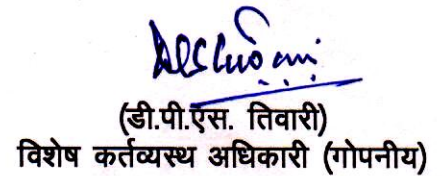 (डी.पी.एस. तिवारी)
विशेष कर्तव्यस्थ अधिकारी (गोपनीय)